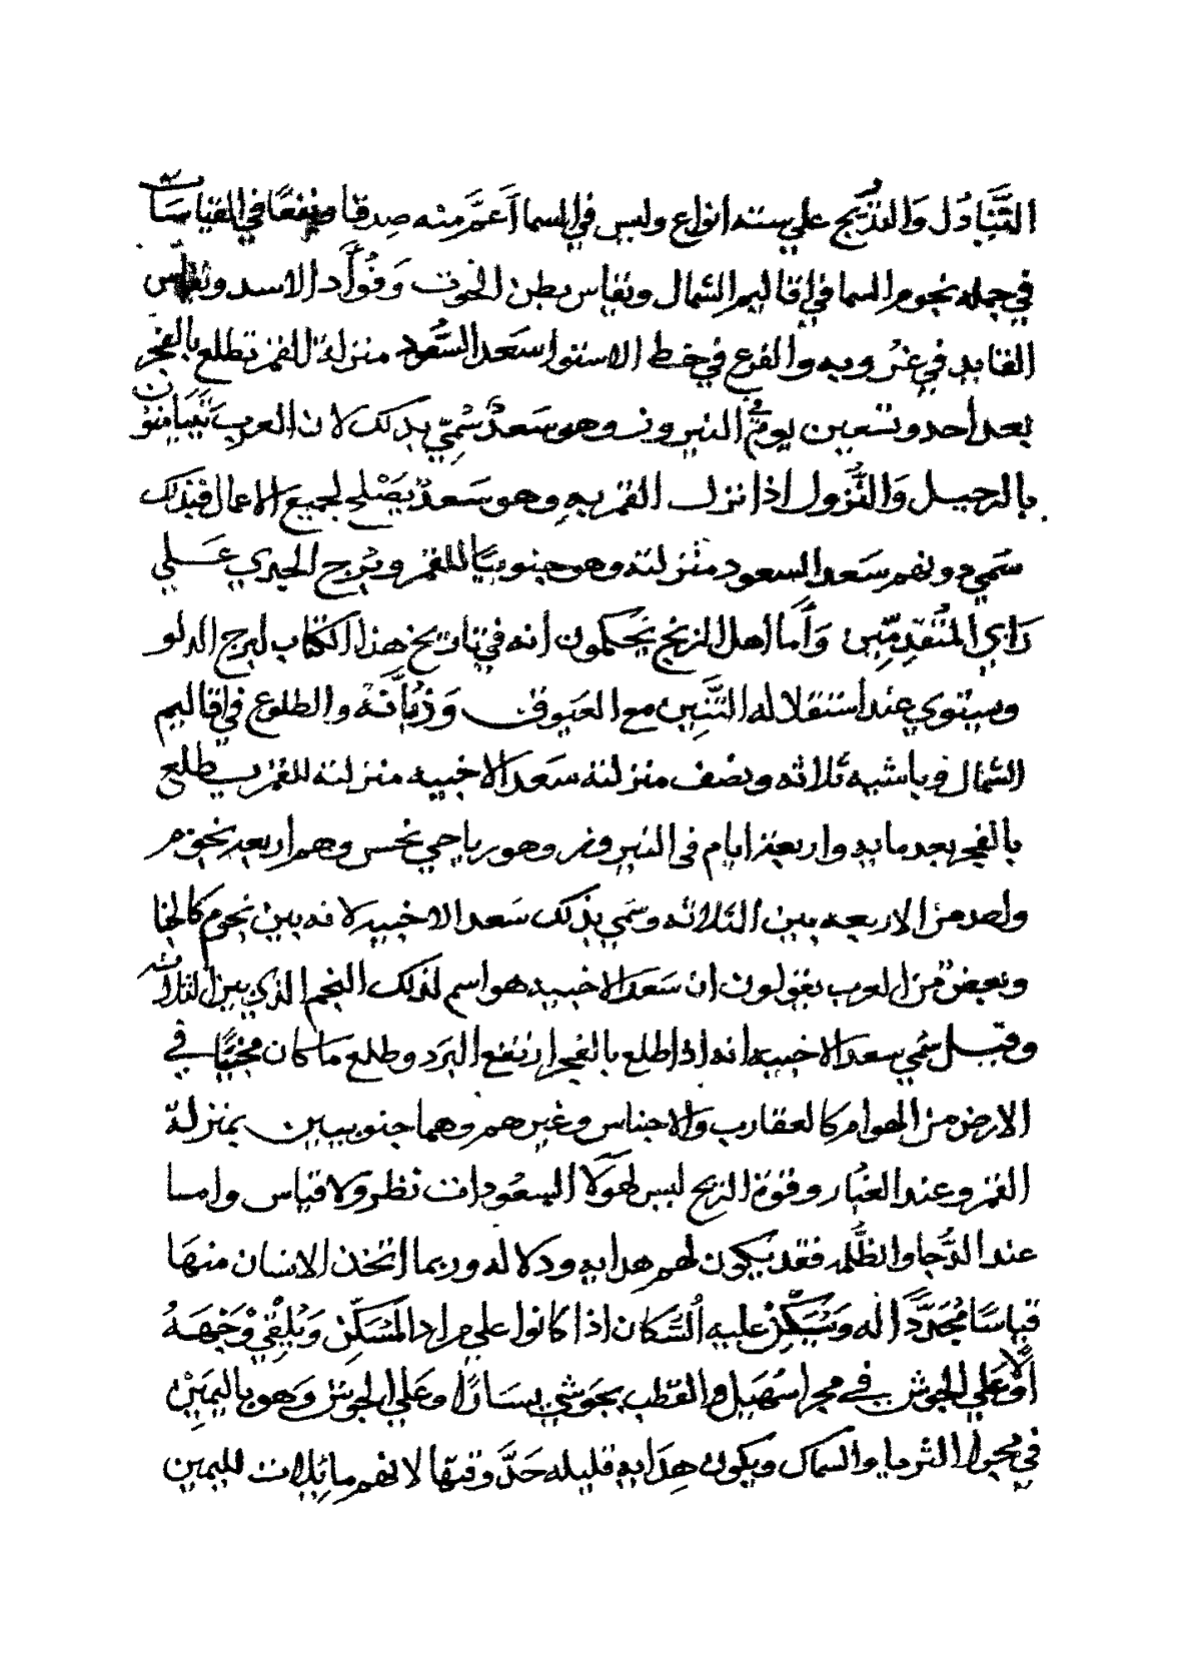 التَّبَادُل وَالتدريج علي سته انواع وليس في السما اَعَمَّر منه صِدقا ونفعًا في القياسَات
في جمله نجوم السما في اقاليم الشمال وتقاس بطن الحُوت وَفُؤَاد الاسد وتقاس
القايد في غُروبه والفرع في خط الاستوا سَعد السُّعود منزلة للقمر تطلع بالفجر
بعد احد وتسعين يومٌ في النيروز وهو سَعدٌ سُمِّي بذلك لان العرب تَتَيَامَنون
بالرحيل وَالنُّزول اذا نزل القمر به وهو سَعدٌ يَصْلح لجميع الاعمال فبذلك
سَمي ونهم سَعد السعود منزلته وهو جنوبيًا للقمر وبُرج الجدي عَلي
رَايِ المُتقدِمِّين وَاَما اهل الزيج يَحكمون انه في تاريخ هذا الكتاب لبرج الدلو
ويستوي عند استقلاله التَّنِين مع العَيوق وَذُبَّانَهْ والطلوع في اقاليم
الشمال وباشيه ثلاثه ونصف منزلته سَعد الاخبيه منزلته للقمر يطلع
بالفجر بعد مايه واربعة ايام في النيروز وهو رياحي نحس وهم اربعه نجوم
ولحد من الاربعه بين الثلاثه وسَمي بذلك سَعد الاخبيه لانه بين نجوم كالخبا
وبعضٌ من العرب يقولون ان سَعد الاخبيه هو اسم لذلك النجم الذي بين الثلاثه
وقيل سُمي سعد الاخبيه انه اذا طلع بالفجر ارتفع البرَد وطلع ما كان مختبًا في
الارض من الهوام كالعقارب والاجناس وغيرهم وهما جنوبيين بمنزلة
القمر وعند الغبُار وقوة الريح ليس لهَوَلا السعُودات نظر ولا قياس واما
عند الدُّجا والظُّلمه فقد يكون لهم هدايه ودلاله وربما اتخذ الانسان منها
قياسًا مُجَدَّدًا له وَيُسَكِّنْ عليه السُّكان اذا كانوا علي مراد المَسَكّن وَيُلقِي وَجَههُ
اَولا عَلي الجوش في مجرا سُهَيل والقطب بجَوشي يسَارًا وعَلي الجوش وَهو باليمَيْن
في مجرا الثريا والسماك ويكون هِدَايه قليله حَدَّ وقتها لانهم مائِلات لليمين